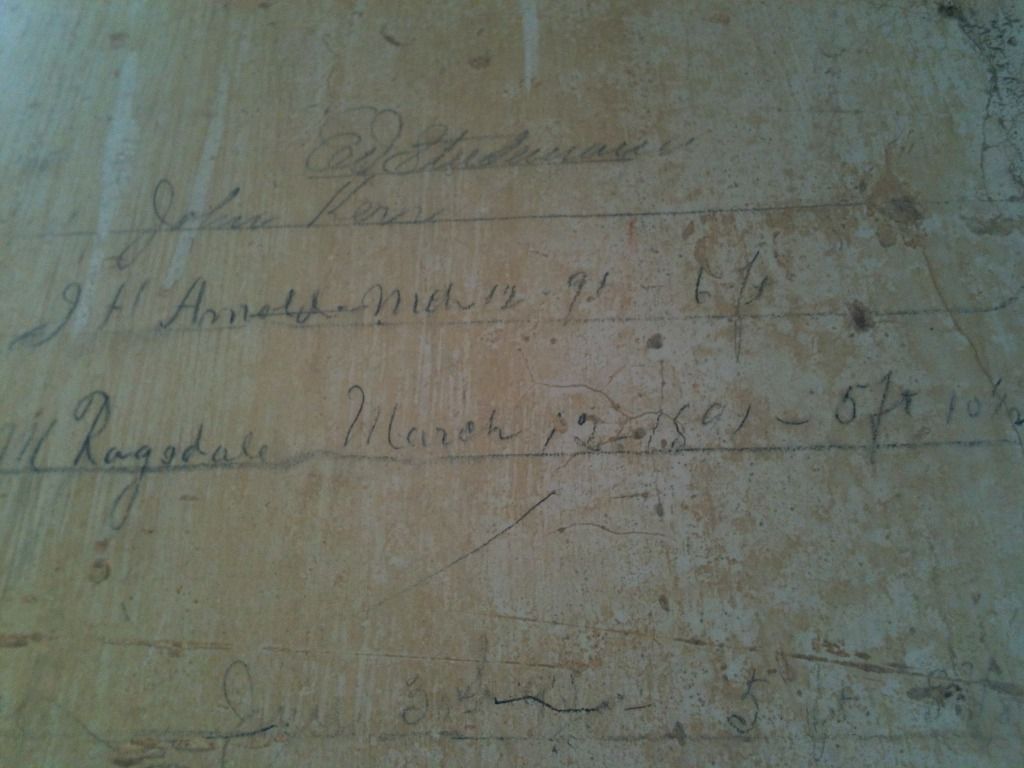 Ed
John Kern
J H Arnold - Mch 12 - 91 - 6 ft
M Ragsdale March 12 - 1891 - 5 ft 10 1/2
5 ft